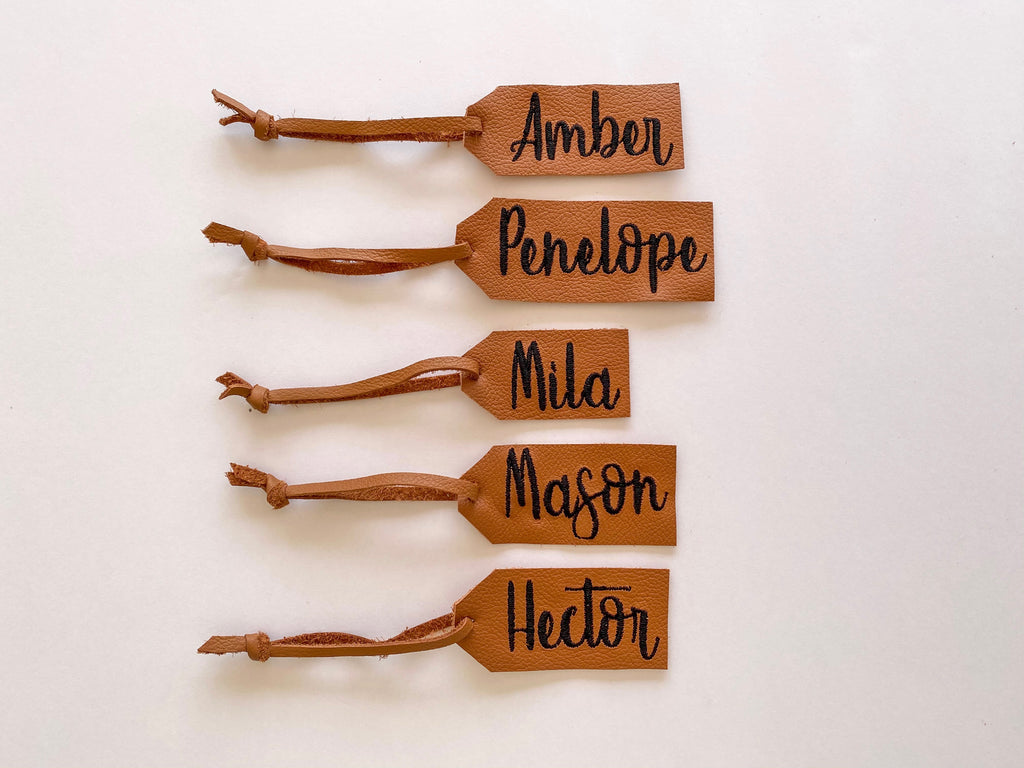 Amber
Penelope
Mila
Mason
Hector